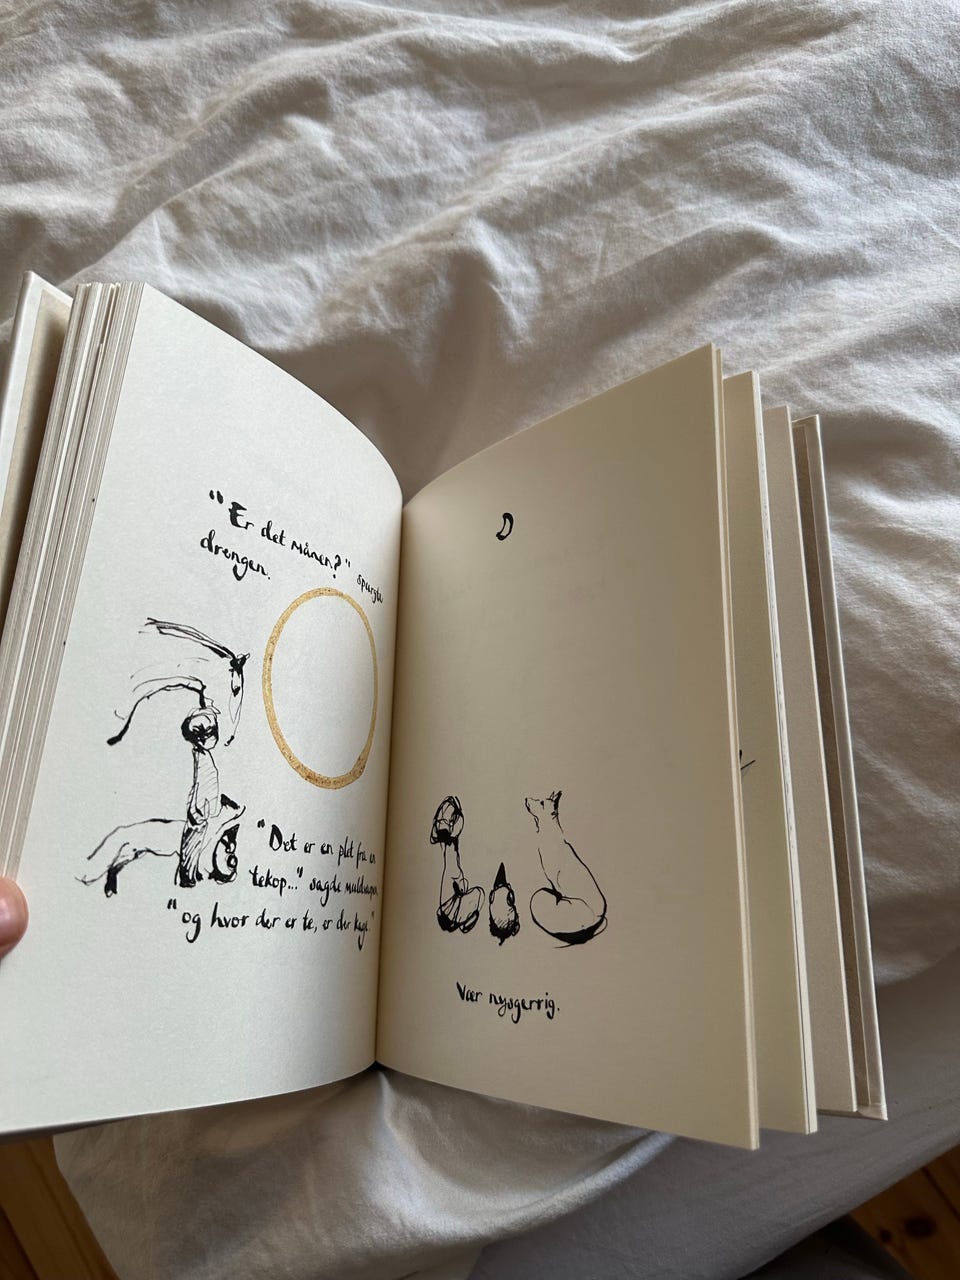 "Er det månen?" spurgte
drengen.
"Det er en plet fra en
tekop..." sagde muldvarpen,
"og hvor der er te, er der kage."
Vær nysgerrig.